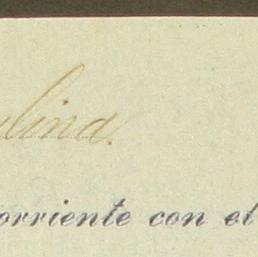 lina.
orriente con el